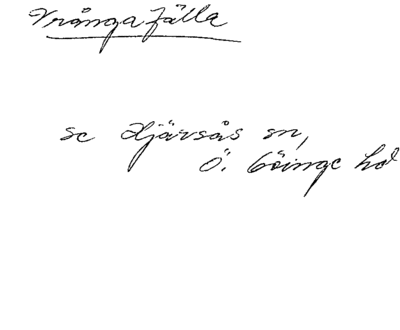 Vrångafälla
se Hjärsås sn,
Ö. Göinge hd